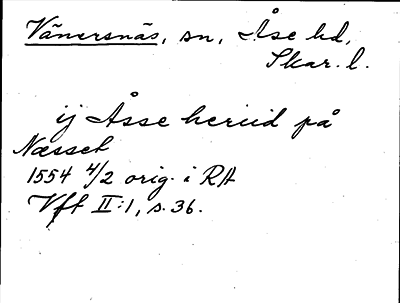 Vänersnäs, sn, Åse hd,
Skar. l.
ij Åsse heriid på
Næsset
1554 4/2 orig. i RA
Vft II:1, s. 36.